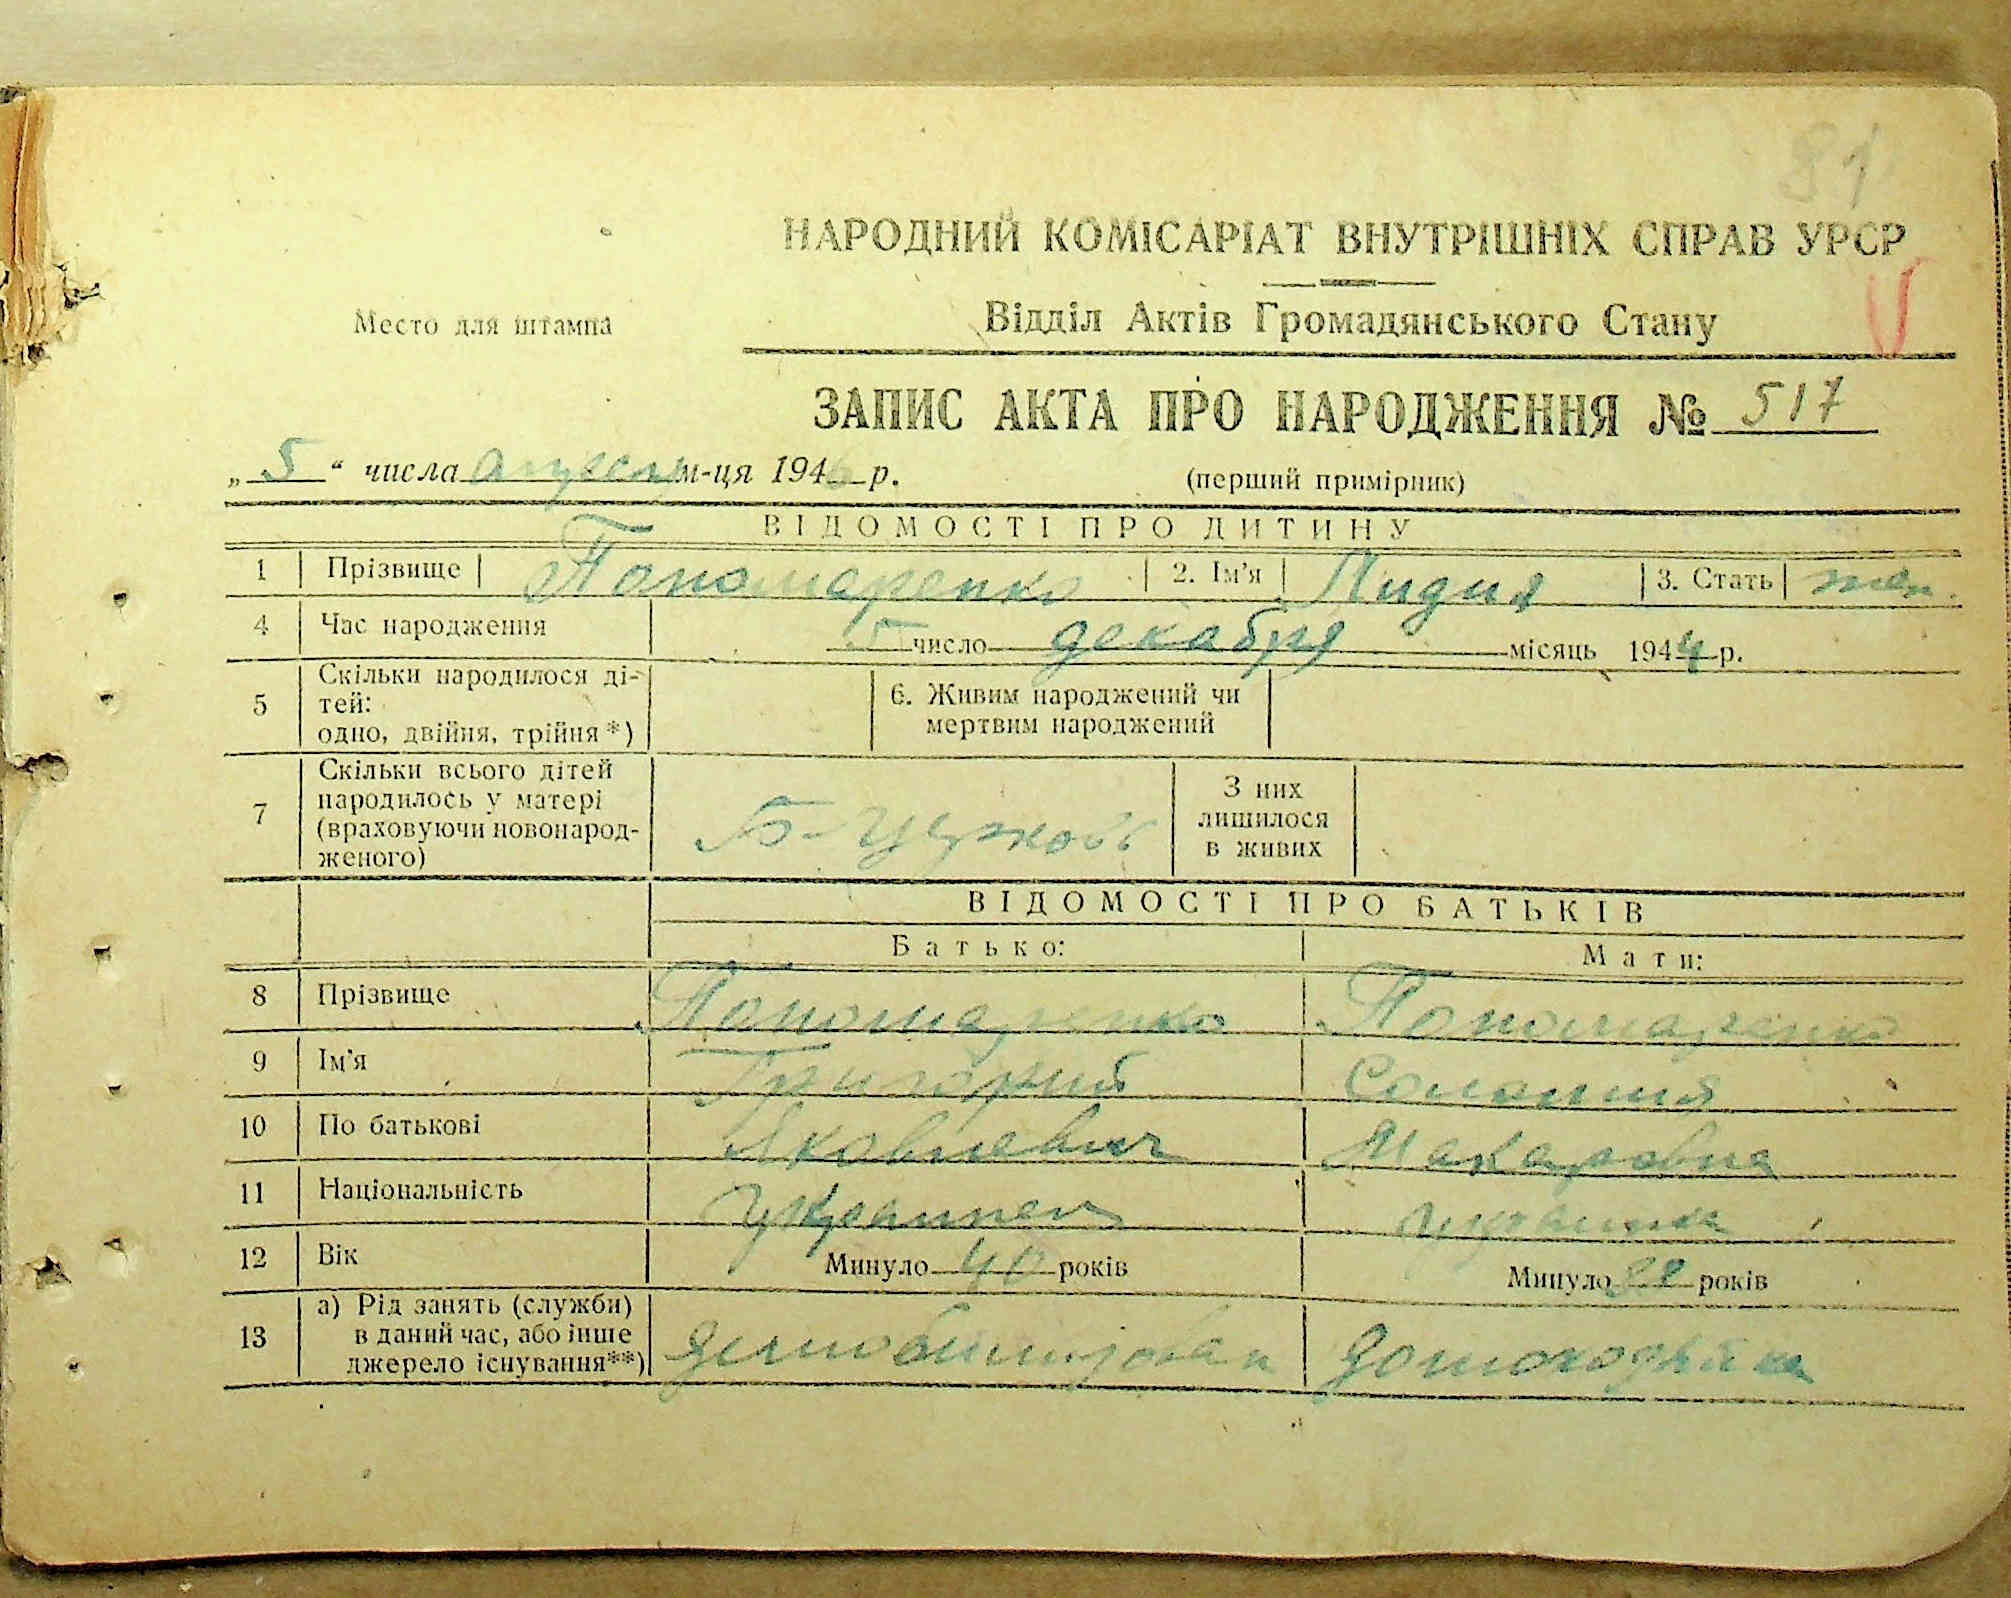 81
НАРОДНИЙ КОМІСАРІАТ ВНУТРІШНІХ СПРАВ УРСР
Место для штампа
Відділ Актів Громадянського Стану
ЗАПИС АКТА ПРО НАРОДЖЕННЯ № 517
„ 5 “ числа апреля м-ця 1946 р. (перший примірник)
ВІДОМОСТІ ПРО ДИТИНУ
1 Прізвище Пономаренко 2. Ім'я Лидия 3. Стать жен.
4 Час народження 5 число декабря місяць 1944 р.
5 Скільки народилося ді-
тей:
одно, двійня, трійня *)
6. Живим народжений чи
мертвим народжений
7 Скільки всього дітей
народилось у матері
(враховуючи новонарод-
женого)
Б-Церковь
З них
лишилося
в живих
ВІДОМОСТІ ПРО БАТЬКІВ
Батько: Мати:
8 Прізвище Пономаренко Пономаренко
9 Ім'я Григорий Соломия
10 По батькові Яковлевич Макаровна
11 Національність Украинец украинка
12 Вік Минуло 40 років Минуло років
13 а) Рід занять (служби)
в даний час, або інше
джерело існування**)
демобилизован домохозяйка